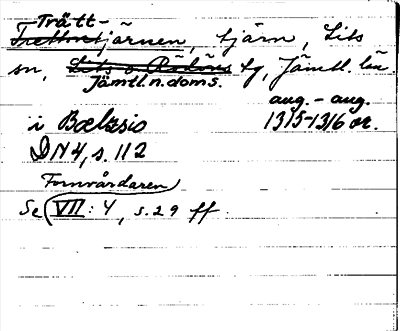 Trätt-
Trettontjärnen, tjärn, Lits
sn, Lits o. Rödöns tg, Jämtl. län.
Jämtl. n. doms.
aug. - aug.
i Bælæsio 1315-1316 or.
DN 4, s. 112
Fornvårdaren
Se VII: 4, s. 29 ff.